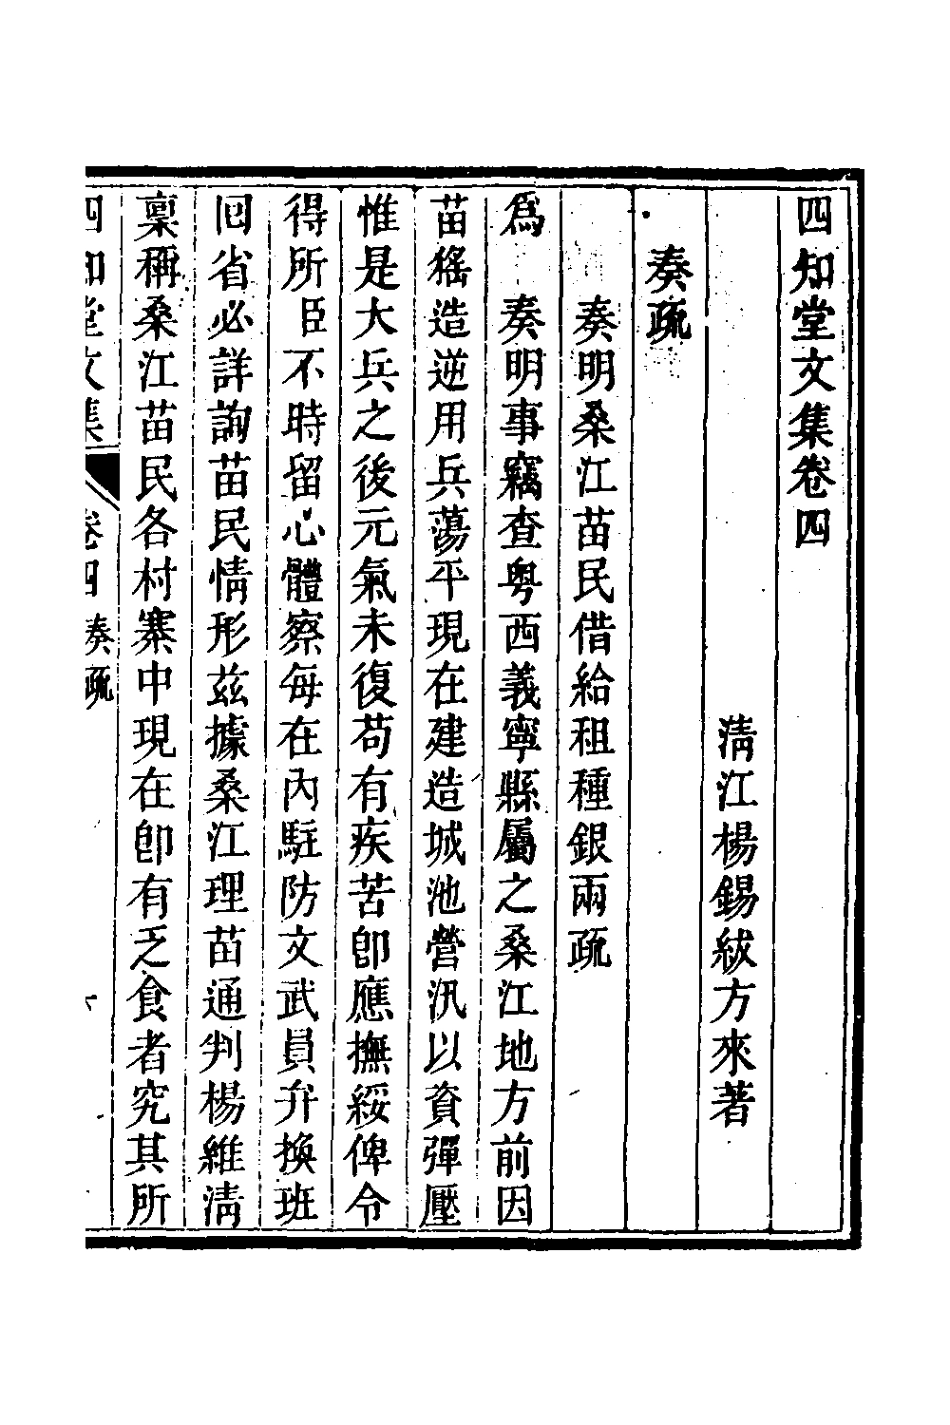 四知堂文集卷四
淸江楊錫紱方來著
奏疏
奏明桑江苗民借給租種銀兩疏
爲　奏明事竊查粤西義寧縣屬之桑江地方前因
苗猺造逆用兵蕩平現在建造城池營汛以資彈壓
惟是大兵之後元氣未復苟有疾苦卽應撫綏俾令
得所臣不時留心體察每在內駐防文武員弁換班
回省必詳詢苗民情形茲據桑江理苗通判楊維淸
稟稱桑江苗民各村寨中現在卽有乏食者究其所
四知堂文集　卷四　奏疏